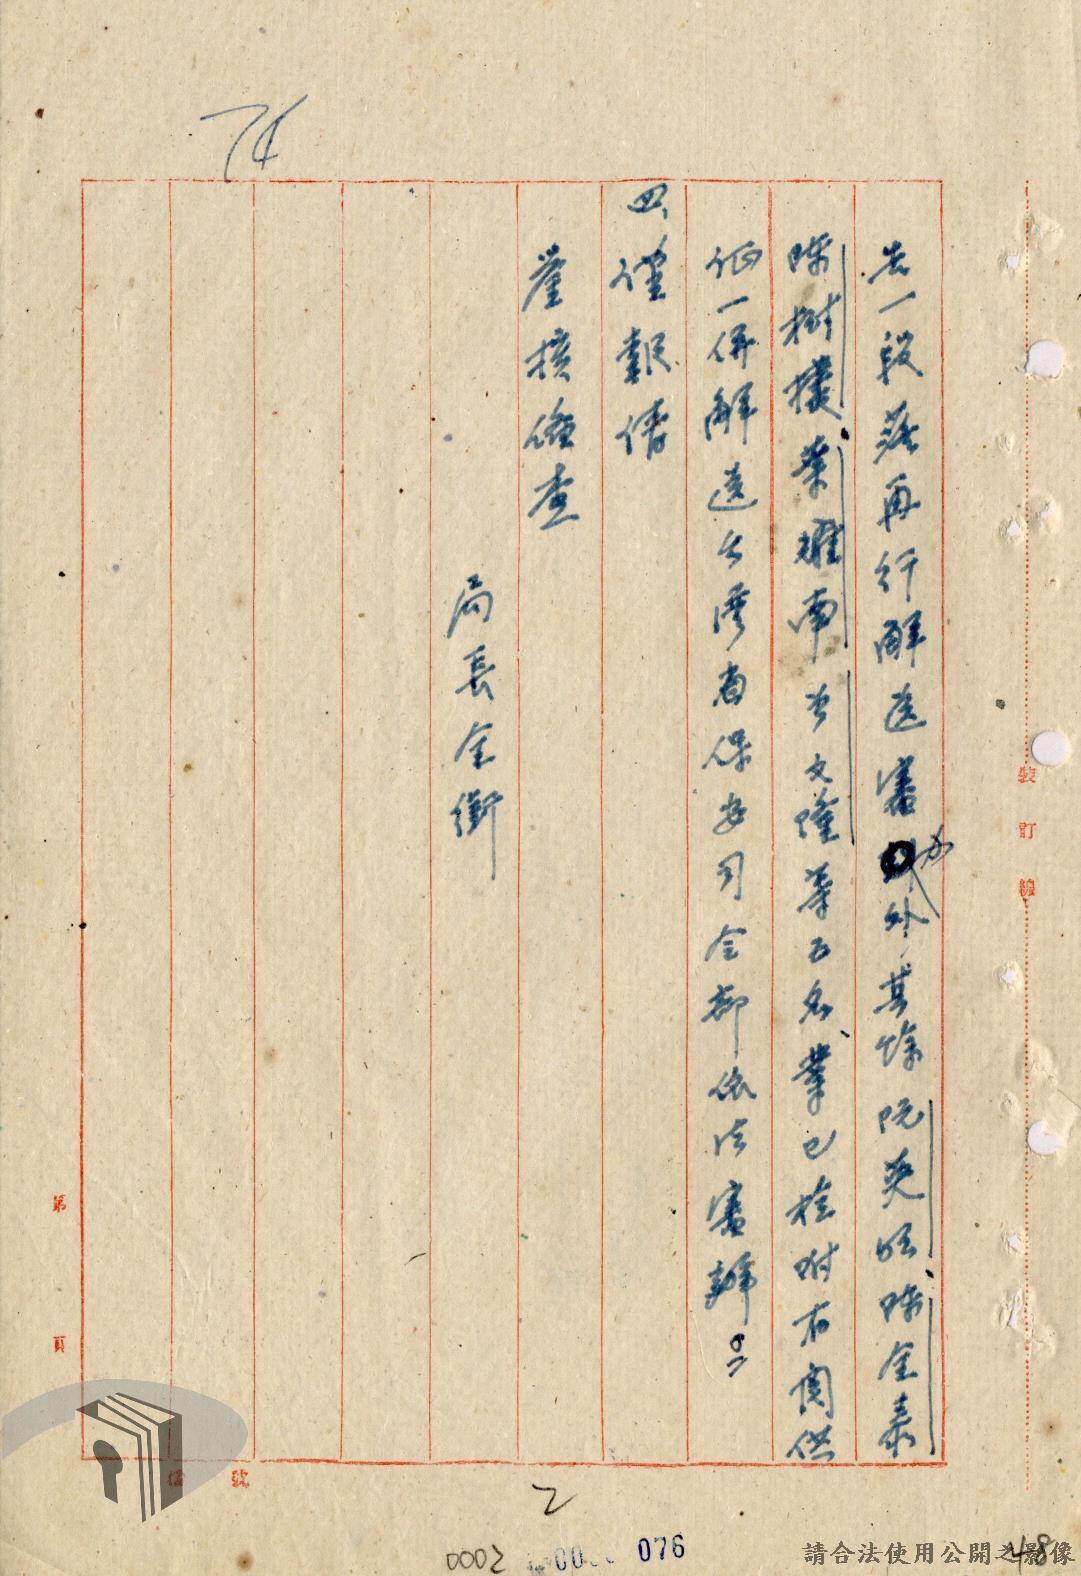 告一段落再行解送審办外，其餘阮英旺、陳金泰
陳樹樸、葉耀南、曾文隆等五名、業已檢附有関供
証一併解送台湾省保安司令部依法審辦。
四、謹報請
鑒核備查
局長金衡
裝訂線
第 頁
號
2
0002
076
48
請合法使用公開之影像